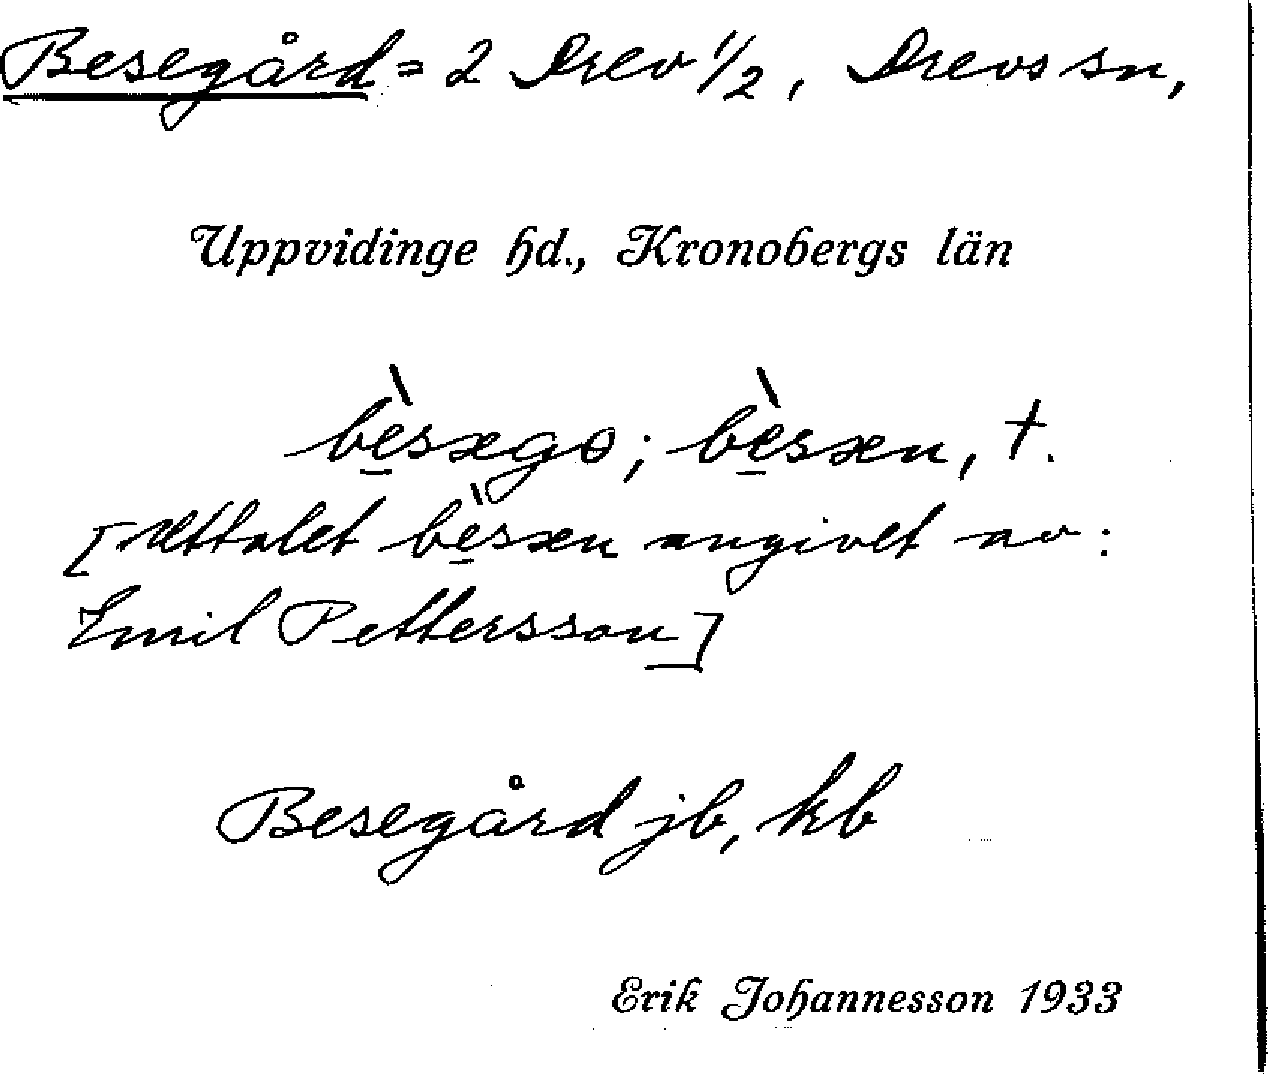 Besegård = 2 Drev 1/2, Drevs sn,
Uppvidinge hd., Kronobergs län
bè̱sægo; bè̱sæn, †.
[Uttalet bè̱sæn angivet av:
Emil Pettersson]
Besegård jb, kb
Erik Johannesson 1933